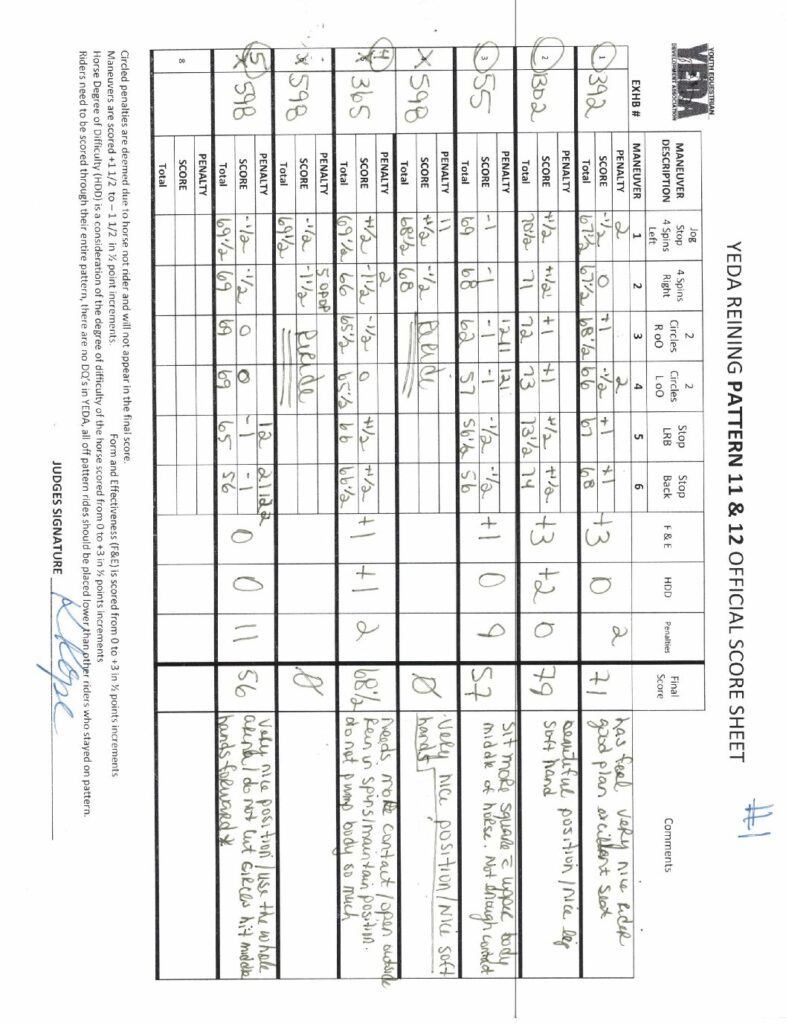 YOUTH EQUESTRIAN
YEDA
DEVELOPMENT ASSOCIATION
YEDA REINING PATTERN 11 & 12 OFFICIAL SCORE SHEET
#1
MANEUVER DESCRIPTION Jog Stop 4 Spins Left 4 Spins Right 2 Circles R oO 2 Circles L oO Stop LRB Stop Back F & E HDD Penalties Final Score Comments
EXHB # MANEUVER 1 2 3 4 5 6
1 392 PENALTY 2 2 2
SCORE -1/2 0 +1 -1/2 +1 +1 +3 0 71
Total 67 1/2 67 1/2 68 1/2 66 67 68
has feel very nice rider
good plan excellent seat
2 1302 PENALTY
SCORE +1/2 +1/2 +1 +1 +1/2 +1/2 +3 +2 0 79
Total 70 1/2 71 72 73 73 1/2 74
beautiful position/nice leg
soft hand
3 55 PENALTY 1211 121
SCORE -1 -1 -1 -1 -1/2 -1/2 +1 0 9 57
Total 69 68 62 57 56 1/2 56
Sit more square = upper body
middle of horse. Not enough contact
4 598 PENALTY 11
SCORE +1/2 -1/2 Reride 0
Total 68 1/2 68
Very nice position/Nice soft
hands
4 365 PENALTY 2
SCORE +1/2 -1 1/2 -1/2 0 +1/2 +1/2 +1 +1 2 68 1/2
Total 69 1/2 66 65 1/2 65 1/2 66 66 1/2
needs more contact/open outside
Rein in spins/maintain position.
do not pump body so much
598 PENALTY 5
SCORE -1/2 -1 1/2 Reride 0
Total 69 1/2
5 598 PENALTY 12 21122
SCORE -1/2 -1/2 0 0 -1 -1 0 0 11 56
Total 69 1/2 69 69 69 65 56
Very nice position/use the whole
arena/do not cut circles hit middle
hands forward *
8 PENALTY
SCORE
Total
Circled penalties are deemed due to horse not rider and will not appear in the final score
Maneuvers are scored +1 1/2 to – 1 1/2 in ½ point increments. Form and Effectiveness (F&E) is scored from 0 to +3 in ½ points increments
Horse Degree of Difficulty (HDD) is a consideration of the degree of difficulty of the horse scored from 0 to +3 in ½ points increments
Riders need to be scored through their entire pattern, there are no DQ's in YEDA, all off pattern rides should be placed lower than other riders who stayed on pattern.
JUDGES SIGNATURE